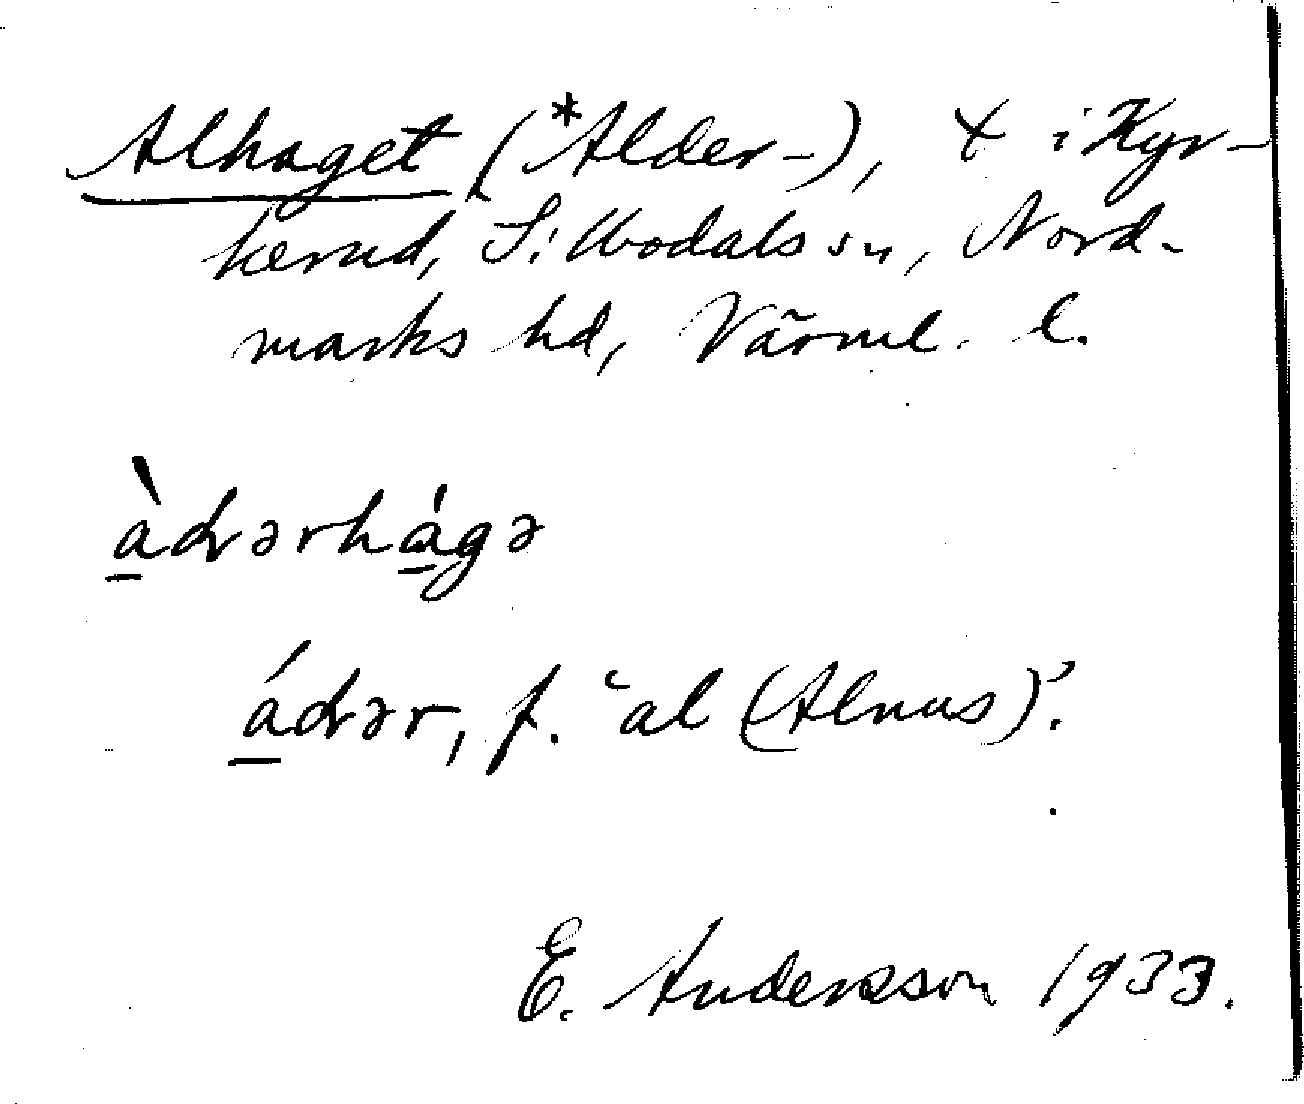 Alhaget (*Alder-), + i Kyr-
kerud, Sillbodals sn, Nord-
marks hd, Värml. l.
àdvərhágə
ádvər, f. ‘al (Alnus)’.
E. Andersson 1933.